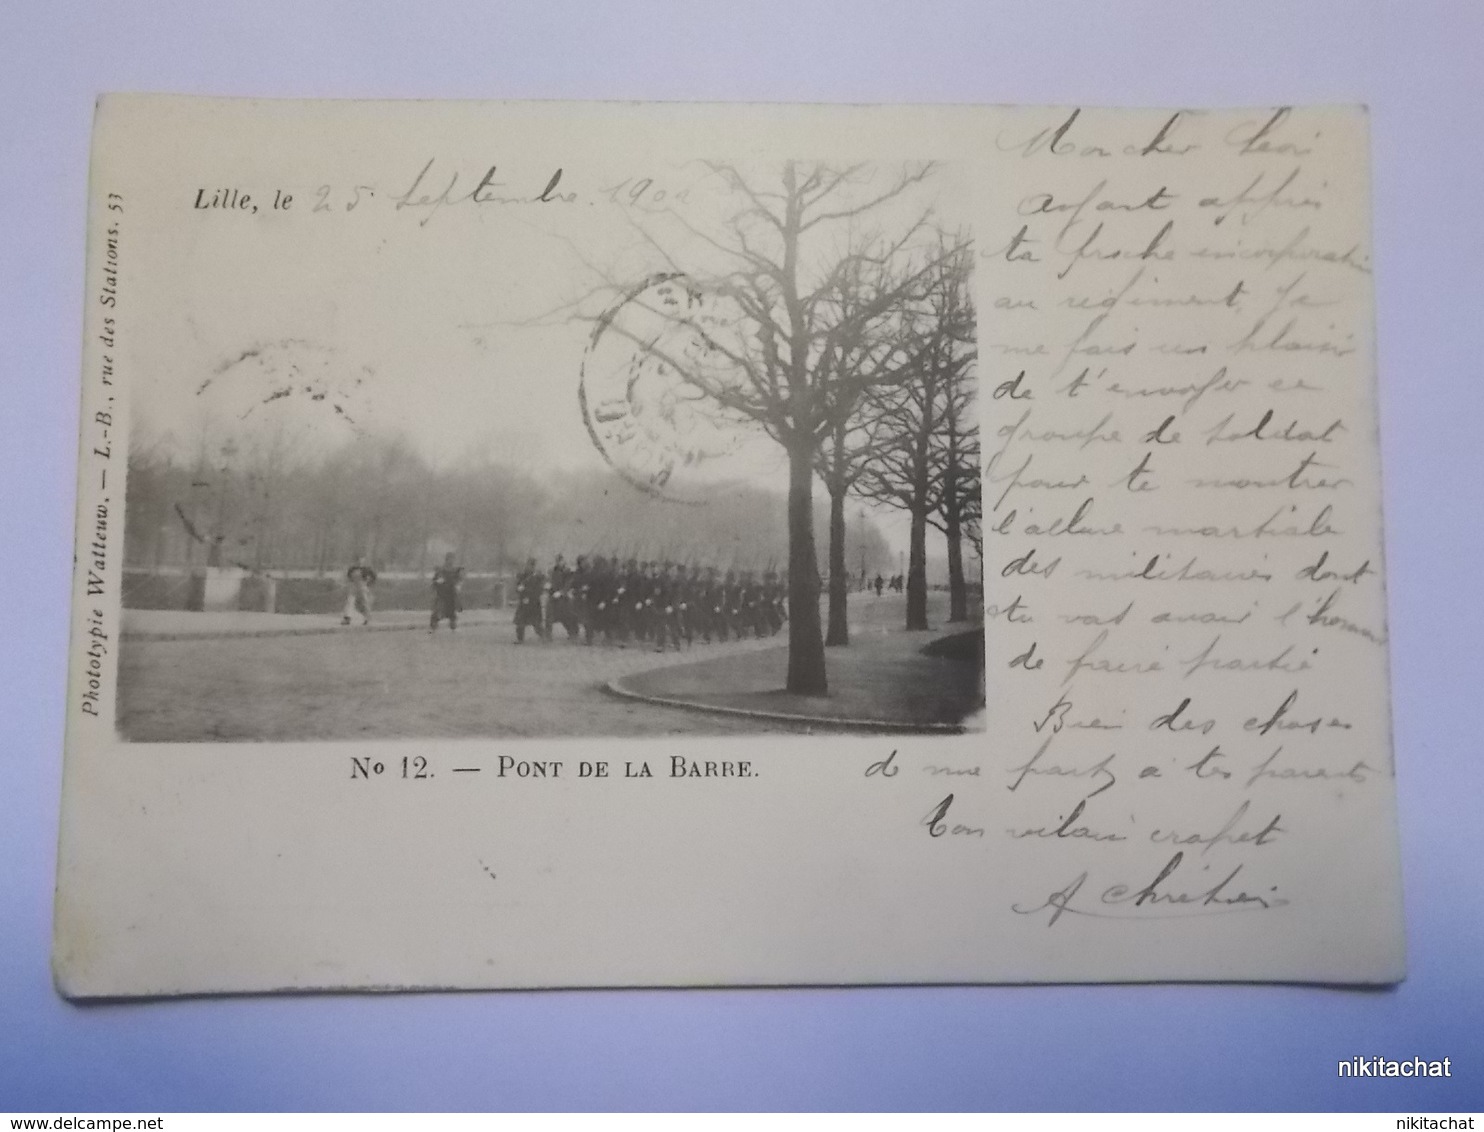 Lille, le 25 Septembre 190
Phototypie Watteuw. — L.-B., rue des Stations. 53
No 12. — PONT DE LA BARRE.
Mon cher Léon
Ayant appris
ta proche incorporation
au régiment, je
me fais un plaisir
de t'envoyer ce
groupe de soldat
pour te montrer
l'allure martiale
des militaires dont
tu vas avoir l'honneur
de faire partie
Bien des choses
de ma part à tes parents
Ton vilain crapet
A Chrétien
nikitachat
nikitachat